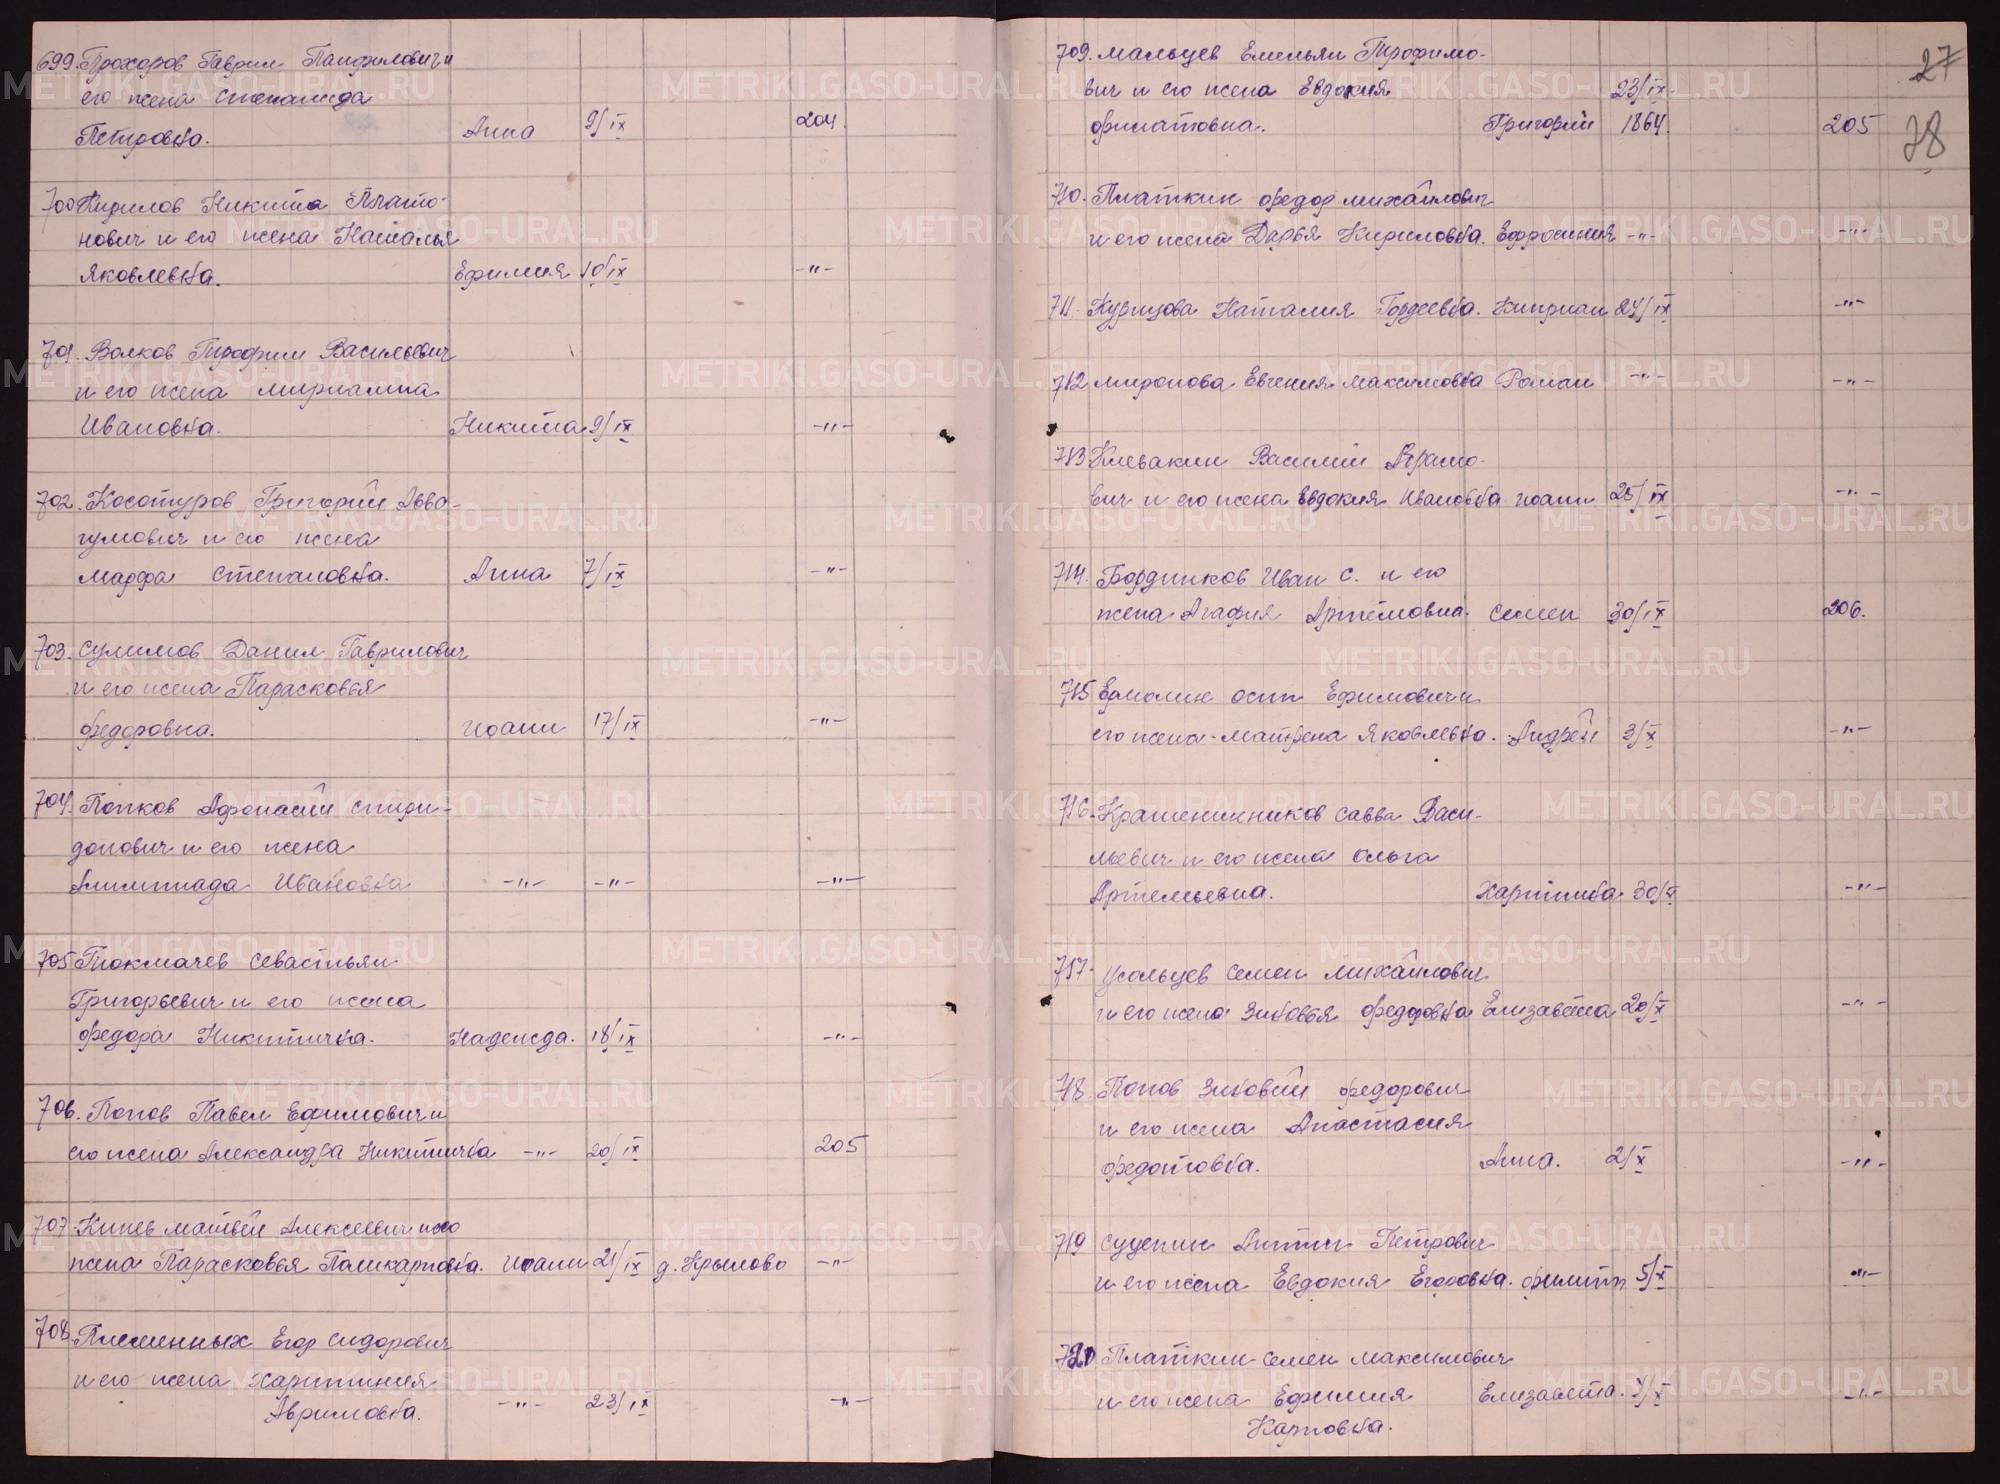 699. Прохоров Гаврил Панфилович и
его жена Степанида
Петровна. Анна 9/IX 204.
700 Кирилов Никита Плато-
нович и его жена Наталья
Яковлевна. Ефимия 10/IX -"-
701. Волков Трофим Васильевич
и его жена Мириамна
Ивановна. Никита 9/IX -"-
702. Косотуров Григорий Авва-
гумович и его жена
Марфа Степановна. Анна 7/IX -"-
703. Сулимов Данил Гаврилович
и его жена Парасковья
Федоровна. Иоанн 17/IX -"-
704. Попков Афонасий Спири-
донович и его жена
Алимпиада Ивановна -"- -"- -"-
705 Токмачев Севастьян
Григорьевич и его жена
Федора Никитична. Надежда. 18/IX -"-
706. Попов Павел Ефимович и
его жена Александра Никитична -"- 20/IX 205
707. Кипев Матвей Алексеевич и его
жена Парасковья Поликарповна. Иоанн 21/IX д. Крылово -"-
708. Племенных Егор Сидорович
и его жена Харитиния
Авримовна. -"- 23/IX -"-
27
28
709. Мальцев Емельян Трофимо-
вич и его жена Евдокия 23/IX.
Филатовна. Григорий 1864. 205
710. Платкин Федор Михайлович
и его жена Дарья Кириловна. Ефросиния -"- -"-
711. Курицова Наталия Гордеевна. Киприан 24/IX -"-
712 Миронова Евгения Максимовна Роман -"- -"-
713 Клевакин Василий Абрамо-
вич и его жена Евдокия Ивановна Иоанн 25/IX -"-
714. Бординков Иван С. и его
жена Агафия Артемовна. Семен 30/IX 206.
715 Ермолин Осип Ефимович и
его жена Матрена Яковлевна. Андрей 3/X -"-
716. Крашенинников Савва Васи-
льевич и его жена Ольга
Артемьевна. Харитина 30/IX -"-
717. Усольцев Семен Михайлович
и его жена Зиновья Федоровна Елизавета 20/X -"-
718 Попов Зиновий Федорович
и его жена Анастасия
Федотовна. Анна. 2/X -"-
719 Суцепин Антип Петрович
и его жена Евдокия Егоровна. Филипп 5/X -"-
720 Платкин Семен Максимович
и его жена Ефимия Елизавета. 4/X -"-
Карповна.